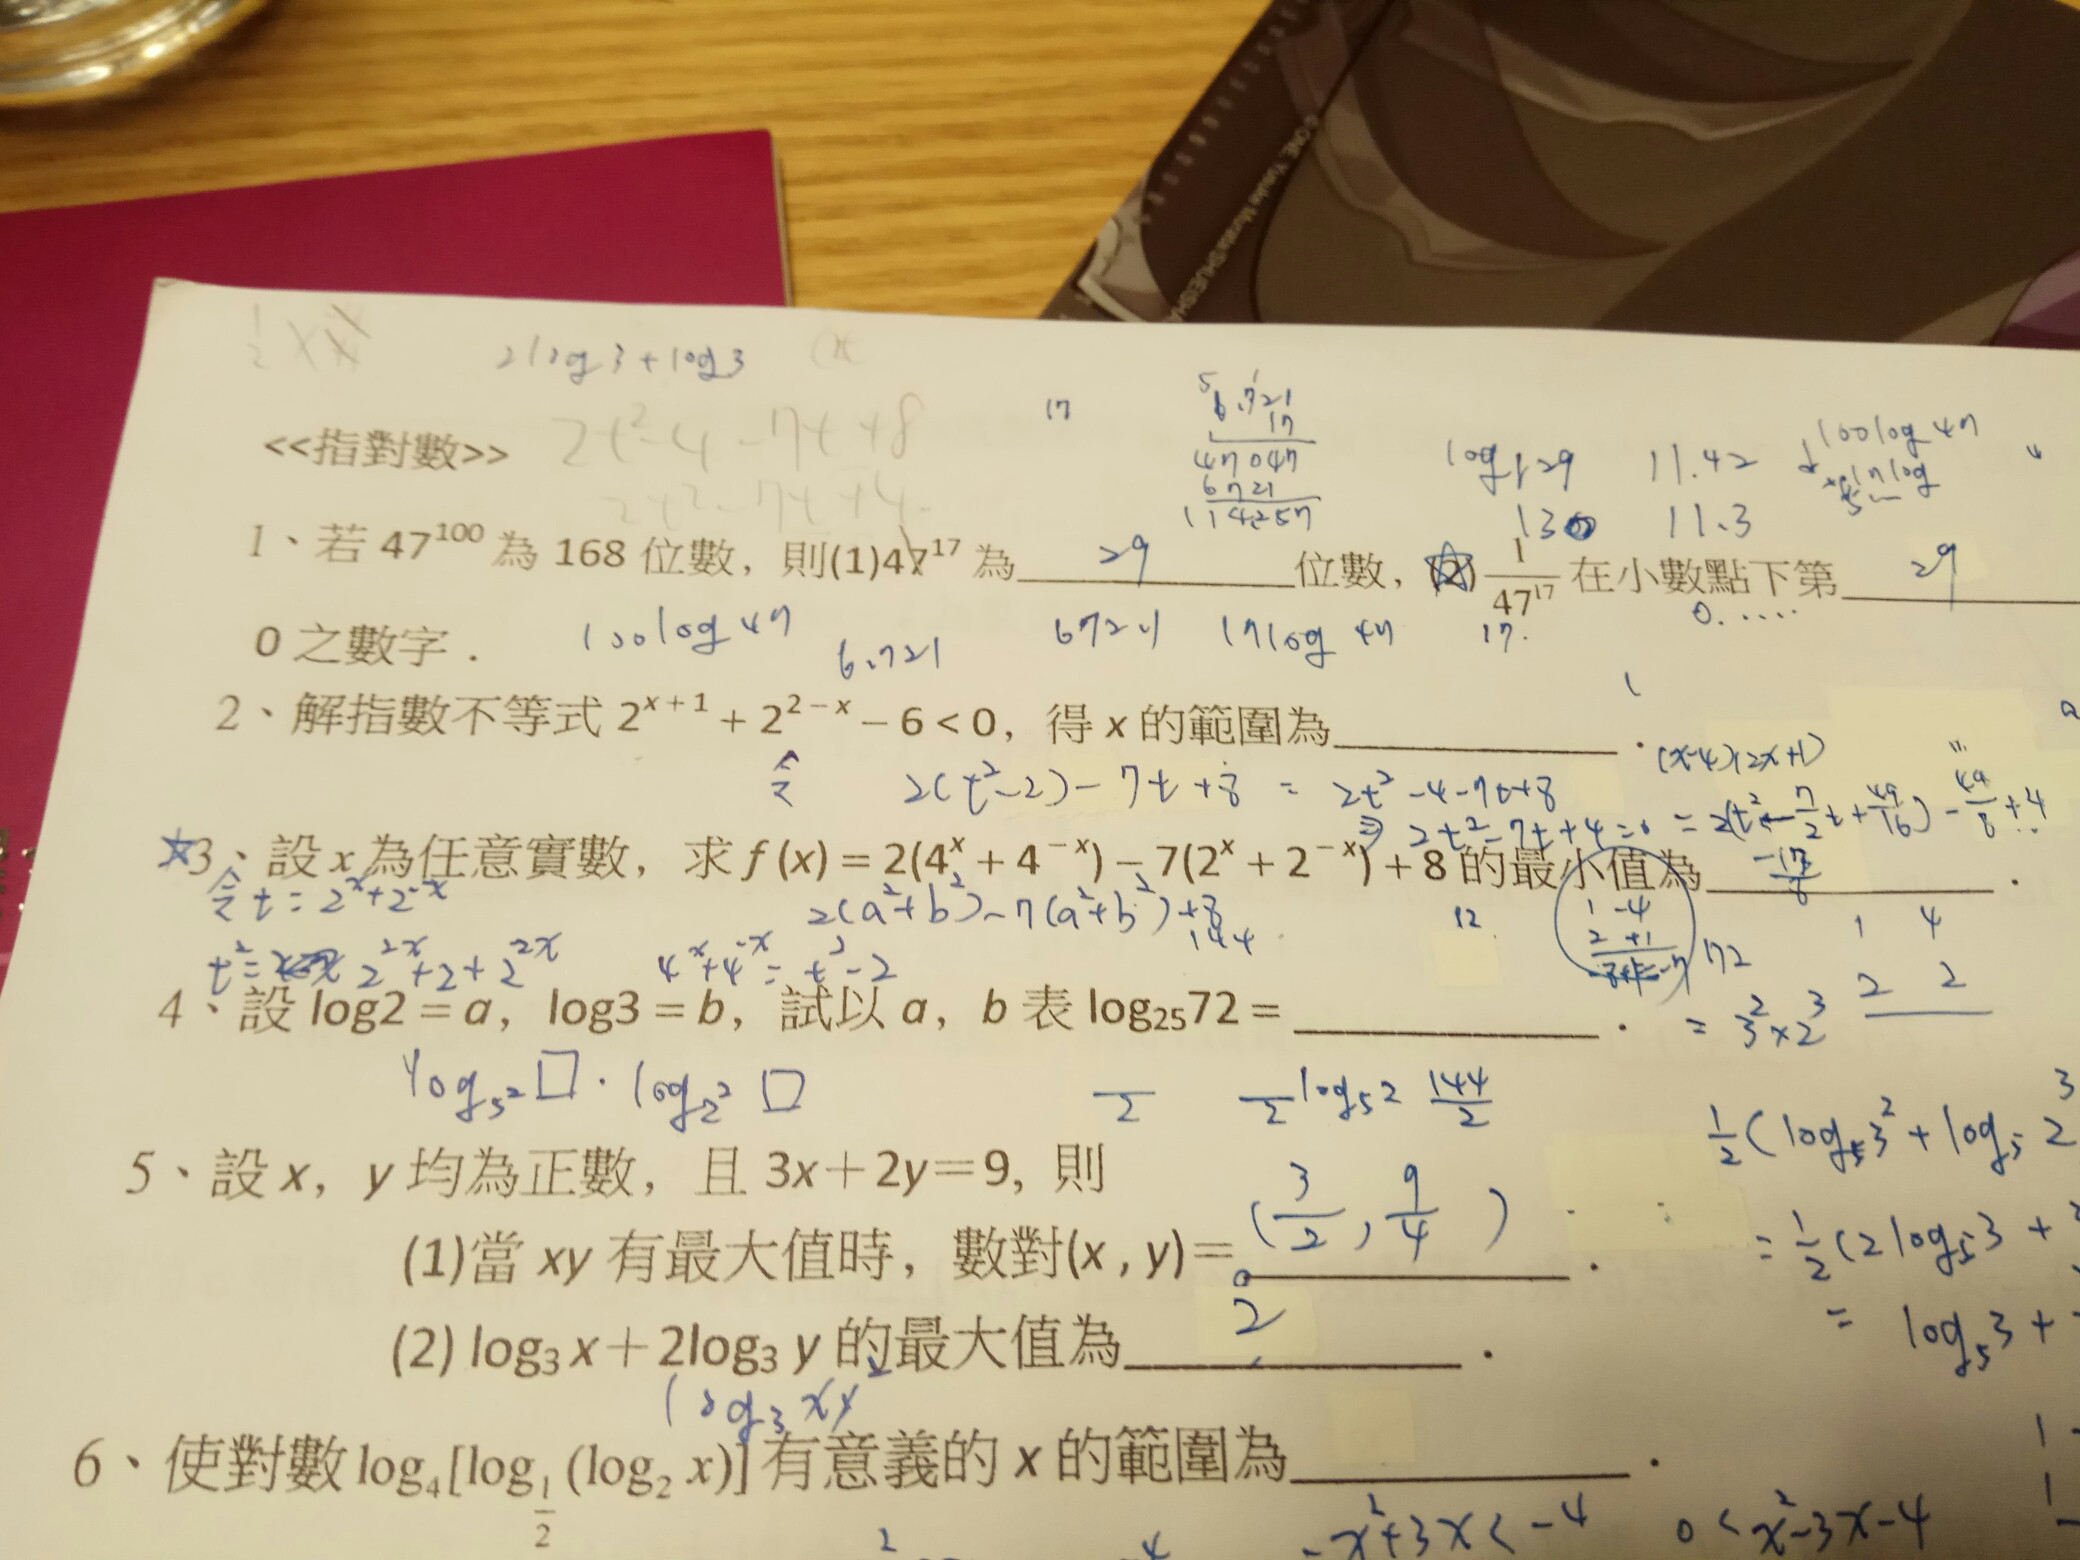 ©ONE, Yusuke Murata/SHUEISHA
2log3+log3
<<指對數>>
2t²-4-7t+8
2t²-7t+4
17
6.721
17
47047
6721
114257
log 129
130
11.42
11.3
100log47
17log
1、若 47¹⁰⁰ 為 168 位數，則(1)47¹⁷ 為 29 位數，(2) 1/47¹⁷ 在小數點下第 29
0 之數字．
100log47
6.721
6721
17log 47
17.
0.....
2、解指數不等式 2ˣ⁺¹ + 2²⁻ˣ − 6 < 0，得 x 的範圍為＿＿＿．
(x-4)(2x+1)
令 2(t²-2)-7t+8 = 2t²-4-7t+8
⇒ 2t²-7t+4=0 = 2(t²-7/2t+49/16)-49/8+4
☆3、設 x 為任意實數，求 f (x) = 2(4ˣ + 4⁻ˣ) − 7(2ˣ + 2⁻ˣ) + 8 的最小值為 -17/8．
令 t=2ˣ+2⁻ˣ
2(a²+b²)-7(a²+b²)+8
144
12
1 -4
2 +1
-8+1=-7
72
1 4
2 2
4ˣ+4⁻ˣ=t²-2
4、設 log2 = a，log3 = b，試以 a，b 表 log₂₅72 = ＿＿＿．
= 3²×2³
log₅²□·log₂²□
log₅2 144/2
1/2(log₅3²+log₅2³
5、設 x，y 均為正數，且 3x＋2y＝9, 則
(1)當 xy 有最大值時，數對(x , y)＝(3/2, 9/4)．
=1/2(2log₅3+
(2) log₃ x＋2log₃ y 的最大值為 2．
= log₅3+
log₃xy²
6、使對數 log₄[log½ (log₂ x)] 有意義的 x 的範圍為＿＿＿．
-x²+3x<-4
0<x²-3x-4